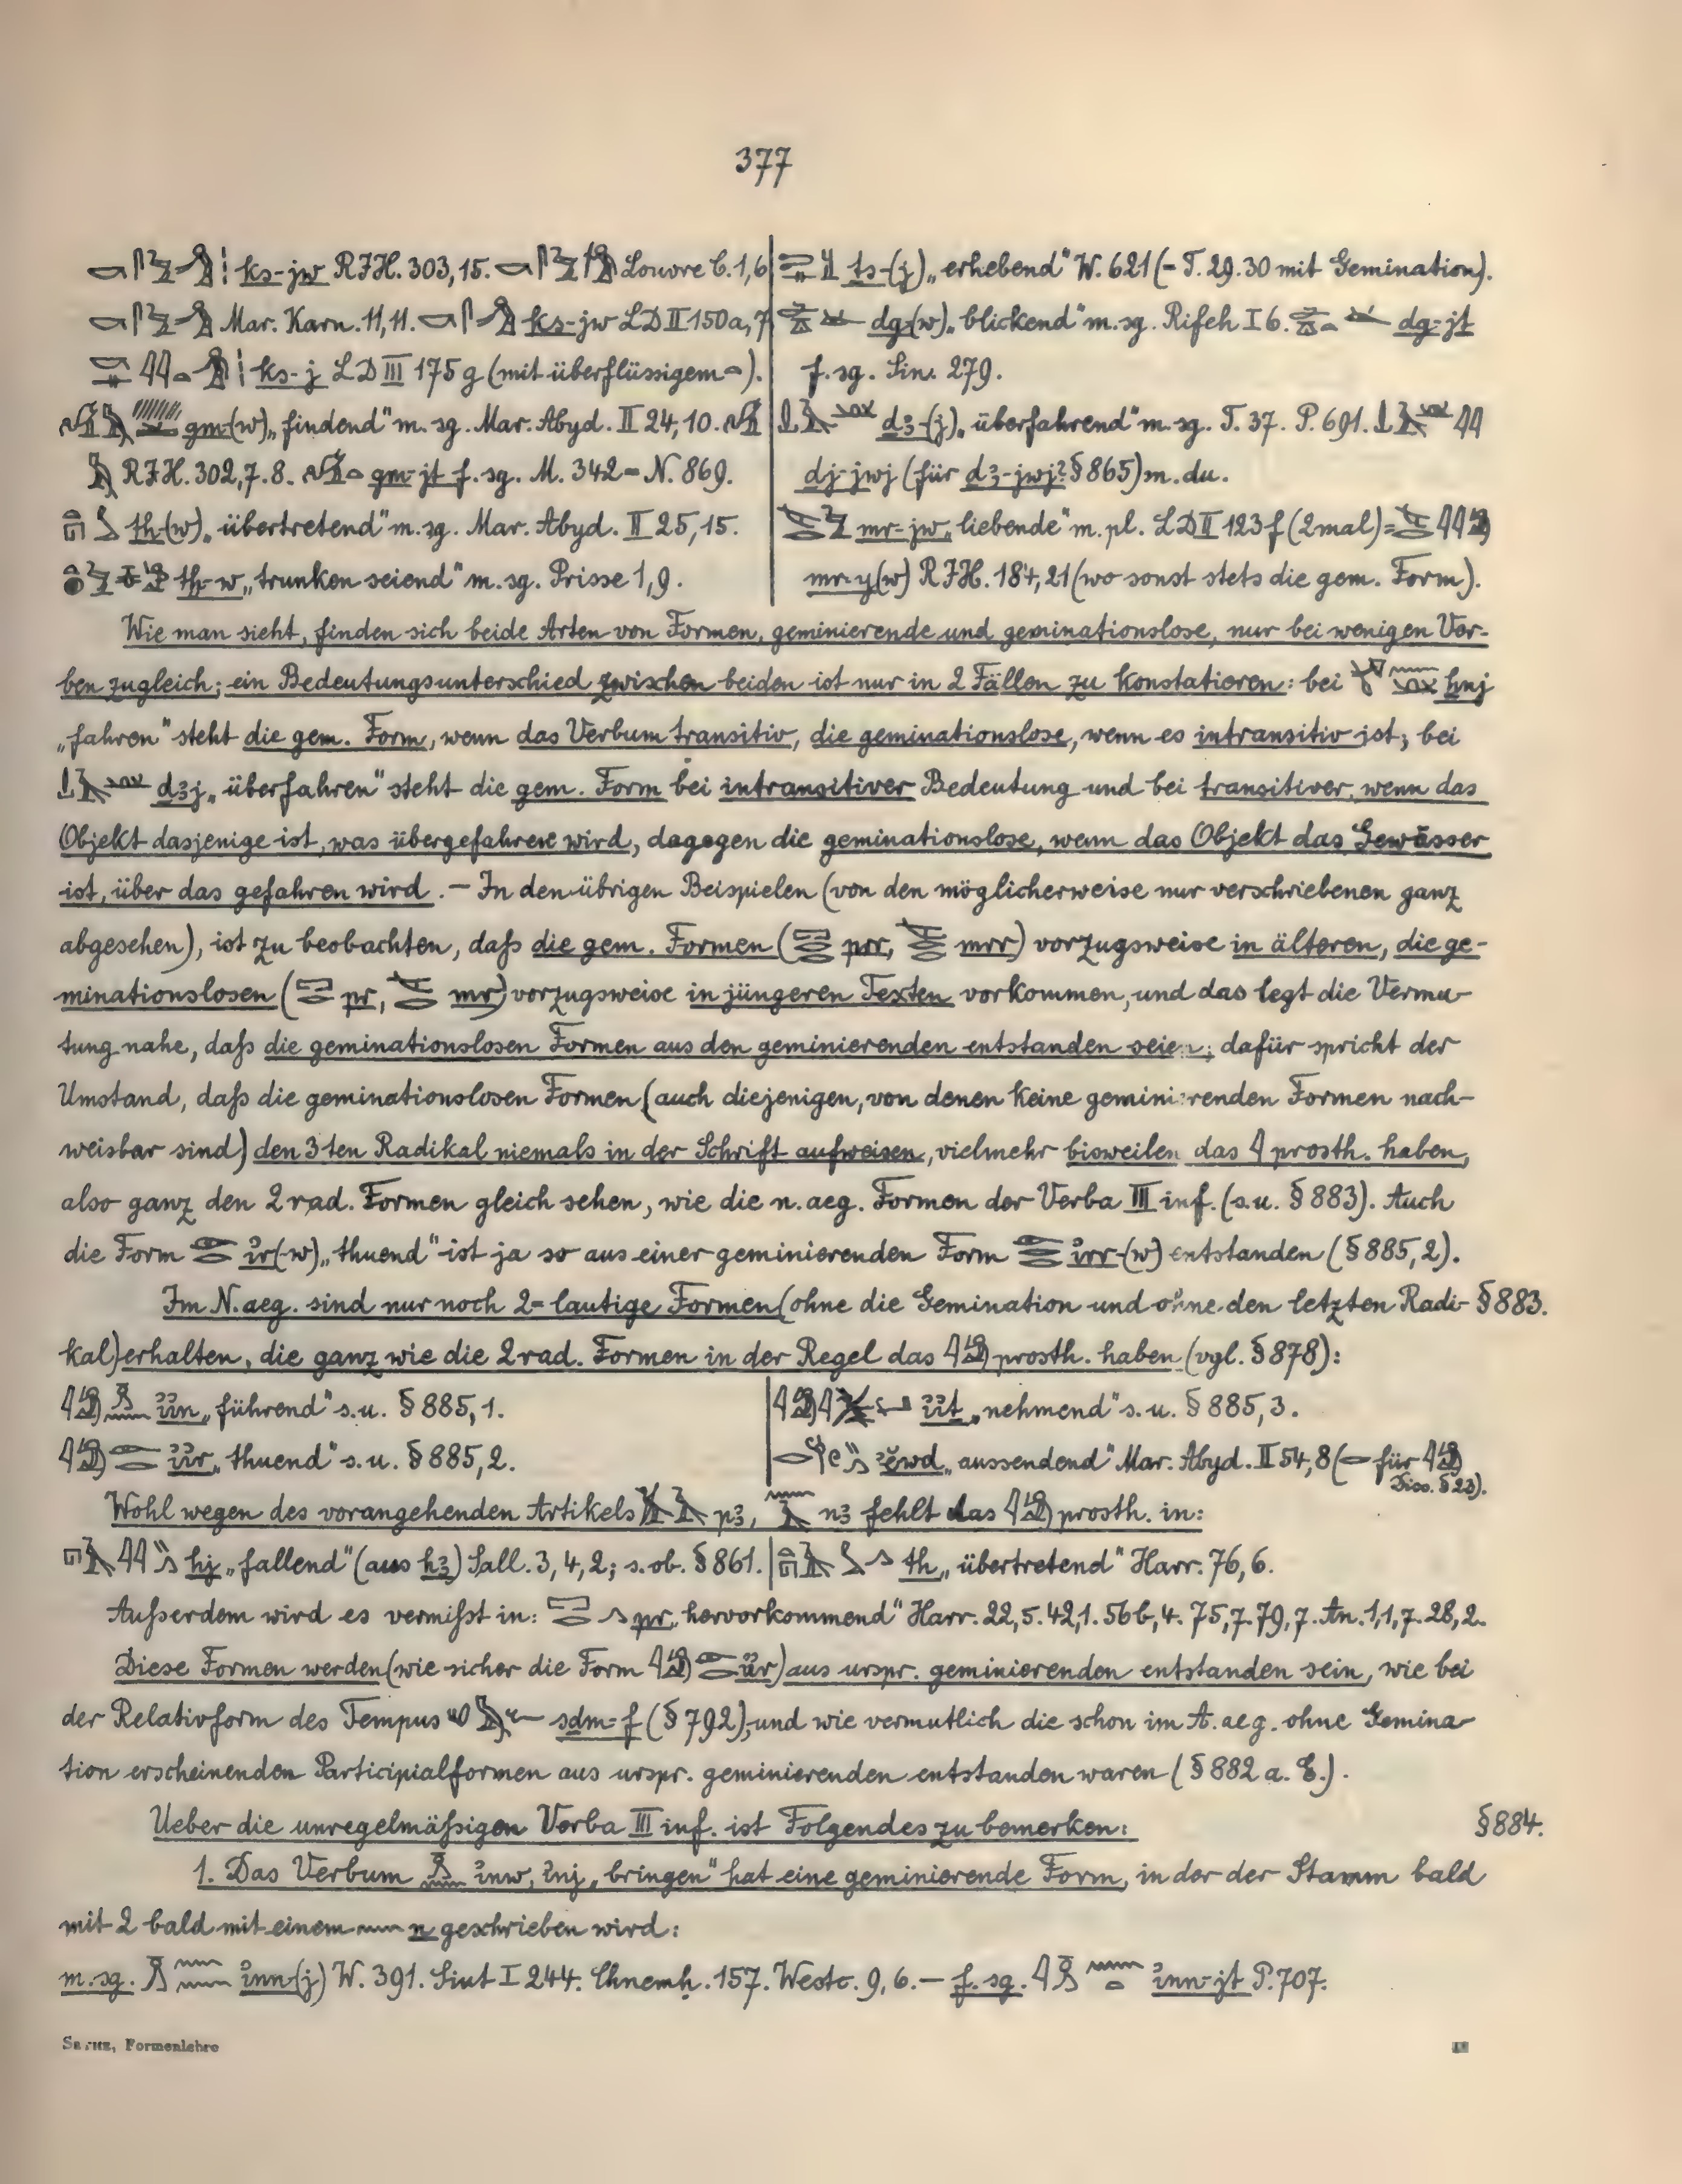 377
ks-jw RJH. 303,15. Louvre C. 1,6
Mar. Karn. 11,11. ks-jw LD II 150a,7
ks-j LD III 175 g (mit überflüssigem ).
gm-(w) „findend“ m. sg. Mar. Abyd. II 24,10.
RJH. 302,7.8. gm-jt f. sg. M. 342 = N. 869.
th-(w) „übertretend“ m. sg. Mar. Abyd. II 25,15.
tḫ-w „trunken seiend“ m. sg. Prisse 1,9.
ts-(j) „erhebend“ W. 621 (= T. 29. 30 mit Gemination).
dg-(w) „blickend“ m. sg. Rifeh I 6. dg-jt
f. sg. Sin. 279.
d3-(j) „überfahrend“ m. sg. T. 37. P. 691.
dj-jwj (für d3-jwj? § 865) m. du.
mr-jw „liebende“ m. pl. LD II 123 f (2mal) =
mr-y(w) RJH. 184,21 (wo sonst stets die gem. Form).
Wie man sieht, finden sich beide Arten von Formen, geminierende und geminationslose, nur bei wenigen Ver-
ben zugleich; ein Bedeutungsunterschied zwischen beiden ist nur in 2 Fällen zu konstatieren: bei ẖnj
„fahren“ steht die gem. Form, wenn das Verbum transitiv, die geminationslose, wenn es intransitiv ist; bei
d3j „überfahren“ steht die gem. Form bei intransitiver Bedeutung und bei transitiver, wenn das
Objekt dasjenige ist, was übergefahren wird, dagegen die geminationslose, wenn das Objekt das Gewässer
ist, über das gefahren wird. – In den übrigen Beispielen (von den möglicherweise nur verschriebenen ganz
abgesehen), ist zu beobachten, daß die gem. Formen ( prr, mrr) vorzugsweise in älteren, die ge-
minationslosen ( pr, mr) vorzugsweise in jüngeren Texten vorkommen, und das legt die Vermu-
tung nahe, daß die geminationslosen Formen aus den geminierenden entstanden seien; dafür spricht der
Umstand, daß die geminationslosen Formen (auch diejenigen, von denen keine geminierenden Formen nach-
weisbar sind) den 3ten Radikal niemals in der Schrift aufweisen, vielmehr bisweilen das prosth. haben,
also ganz den 2rad. Formen gleich sehen, wie die n. aeg. Formen der Verba III inf. (s. u. § 883). Auch
die Form ir(-w) „thuend“ ist ja so aus einer geminierenden Form irr-(w) entstanden (§ 885,2).
Im N. aeg. sind nur noch 2-lautige Formen (ohne die Gemination und ohne den letzten Radi- § 883.
kal) erhalten, die ganz wie die 2rad. Formen in der Regel das prosth. haben (vgl. § 878):
iin „führend“ s. u. § 885,1.
iir „thuend“ s. u. § 885,2.
iit „nehmend“ s. u. § 885,3.
ěwd „aussendend“ Mar. Abyd. II 54,8 ( für
Diss. § 23).
Wohl wegen des vorangehenden Artikels p3, n3 fehlt das prosth. in:
hj „fallend“ (aus h3) Sall. 3,4,2; s. ob. § 861.
th „übertretend“ Harr. 76,6.
Außerdem wird es vermißt in: pr „hervorkommend“ Harr. 22,5. 42,1. 56b,4. 75,7. 79,7. An. 1,1,7. 28,2.
Diese Formen werden (wie sicher die Form iir) aus urspr. geminierenden entstanden sein, wie bei
der Relativform des Tempus sdm-f (§ 792), und wie vermutlich die schon im A. aeg. ohne Gemina-
tion erscheinenden Participialformen aus urspr. geminierenden entstanden waren (§ 882 a. E.).
Ueber die unregelmäßigen Verba III inf. ist Folgendes zu bemerken: § 884.
1. Das Verbum inw, inj „bringen“ hat eine geminierende Form, in der der Stamm bald
mit 2 bald mit einem n geschrieben wird:
m. sg. inn-(j) W. 391. Siut I 244. Chnemh. 157. Westc. 9,6. – f. sg. inn-jt P. 707.
SETHE, Formenlehre